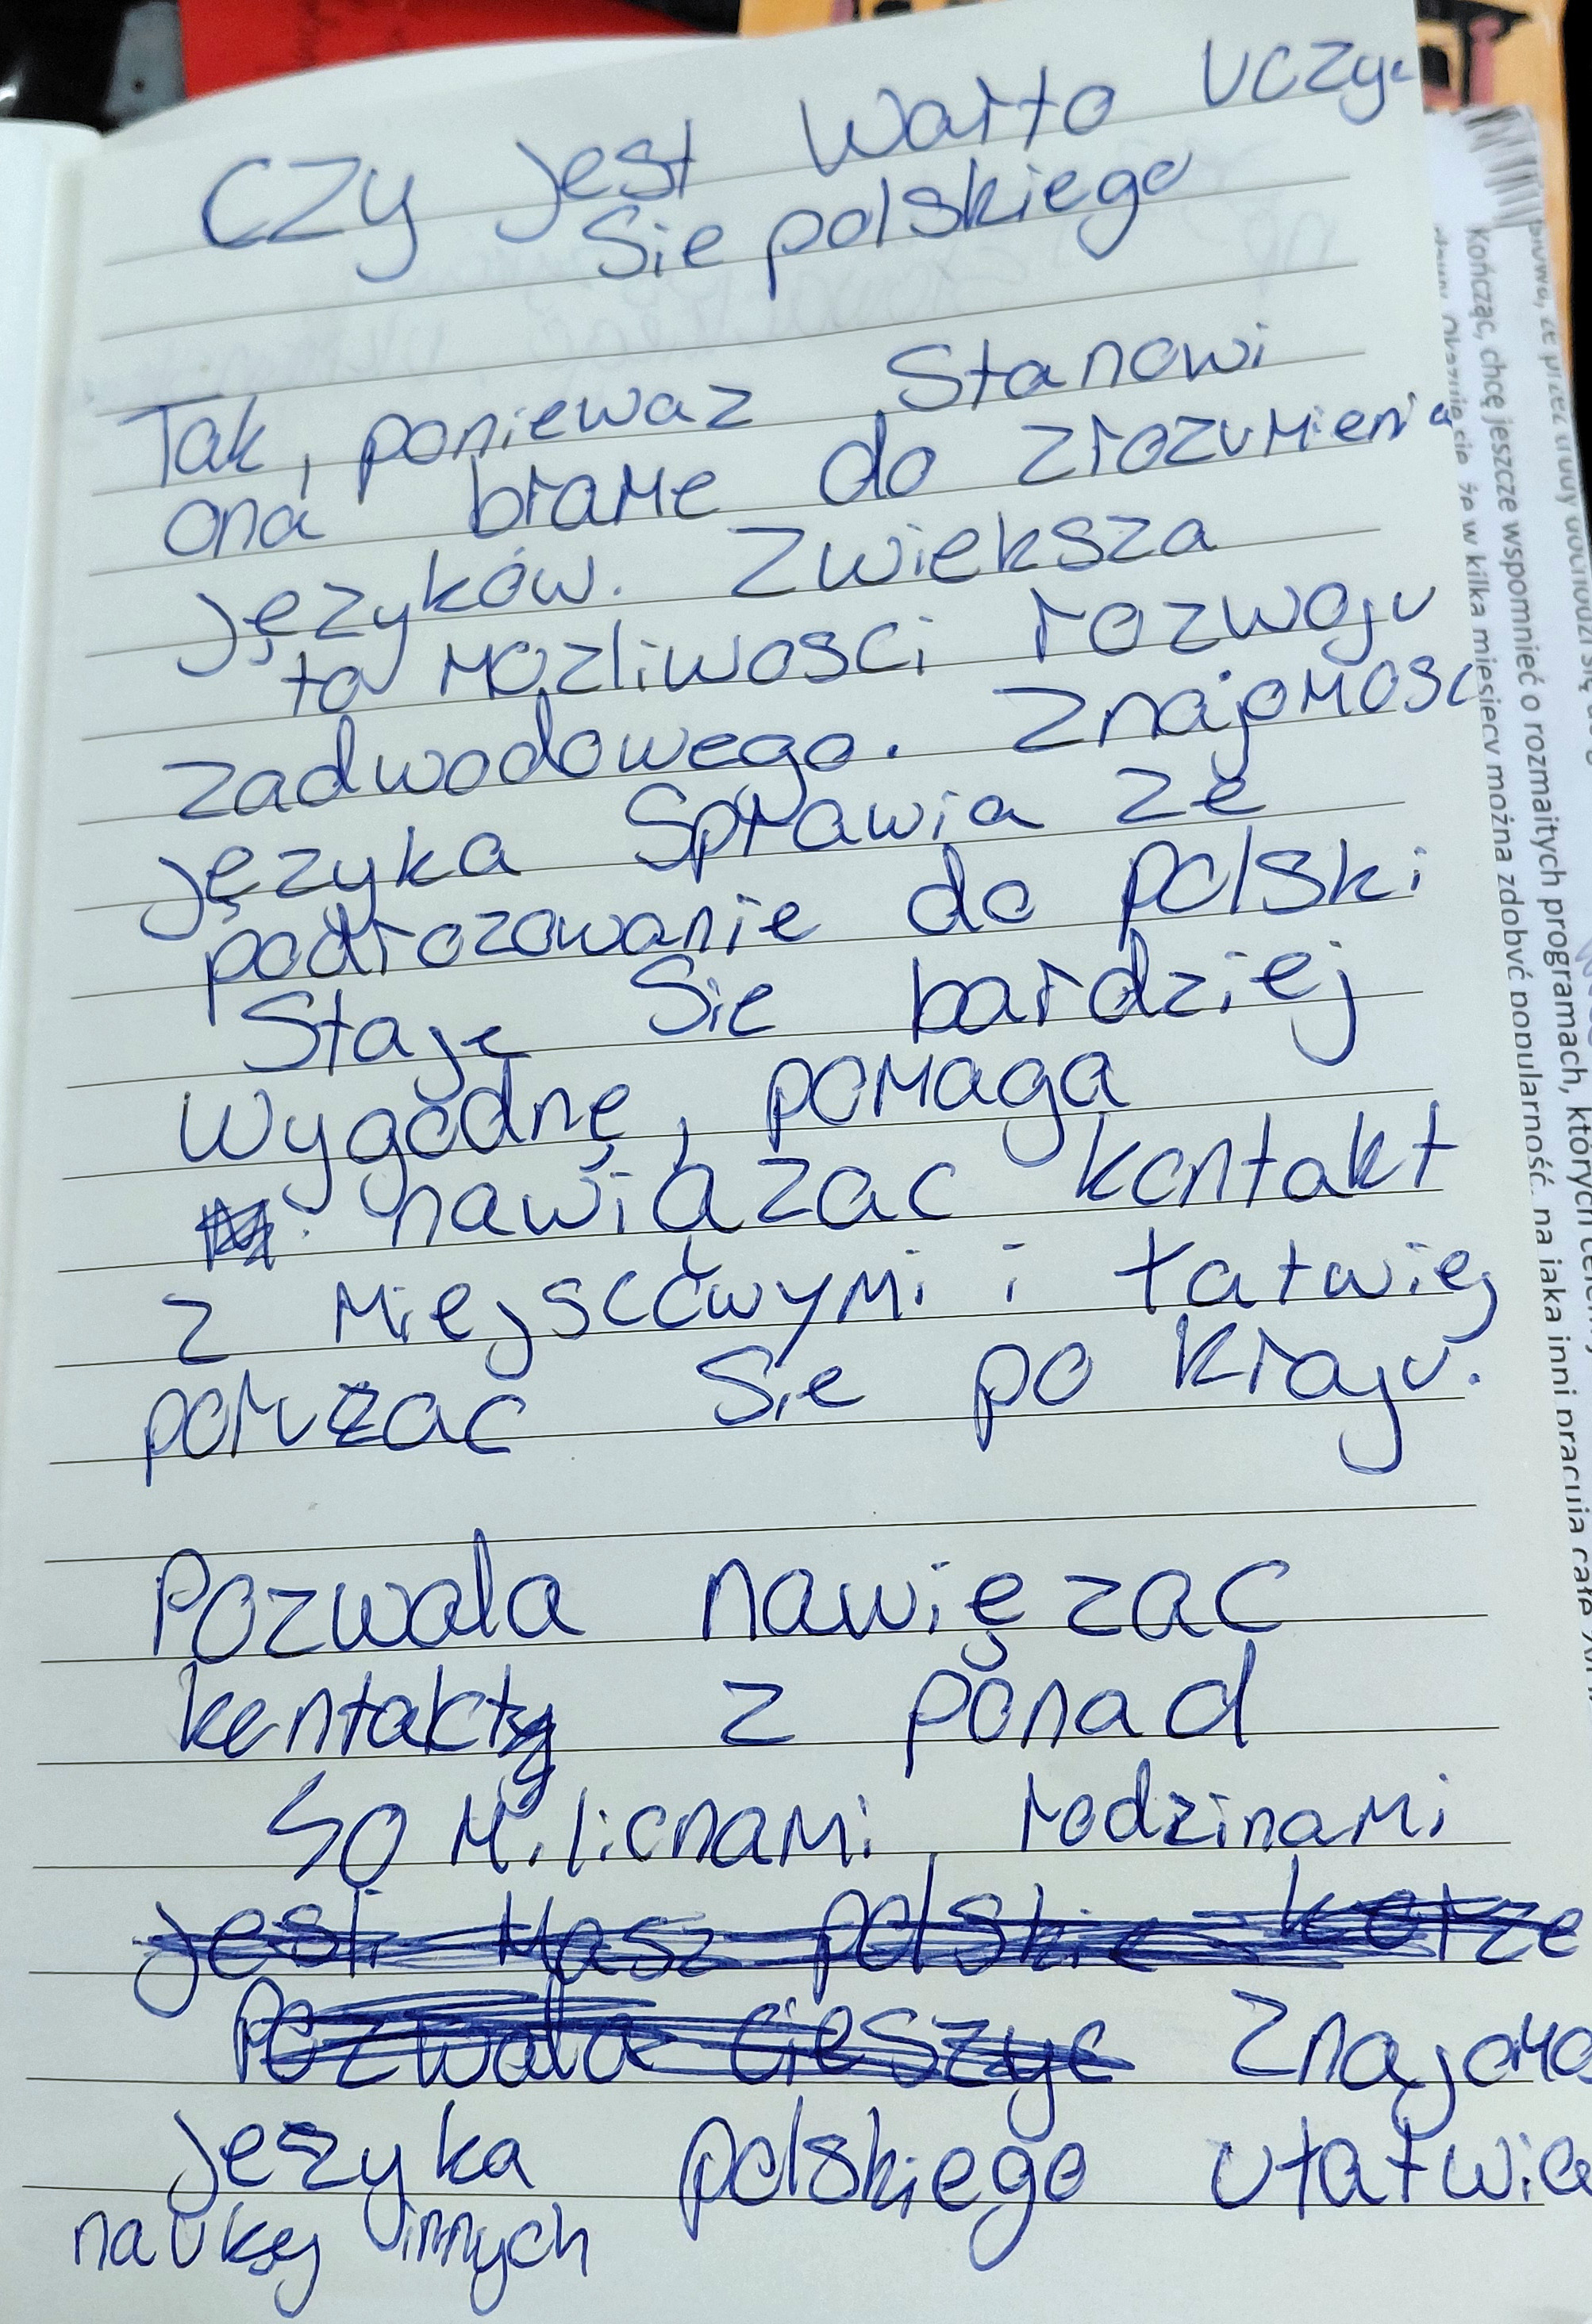 Czy jest warto uczyć
Sie polskiego
Tak, poniewaz Stanowi
ona brame do zrozumienia
języków. Zwieksza
to mozliwosci rozwoju
zadwodowego. Znajomosc
języka Sprawia ze
podrozowanie do polski
Staje Sie bardziej
wygodnę, pomaga
nawiązac kontakt
z miejscowymi i łatwiej
poruzac Sie po kraju.
Pozwala nawięzac
kontakty z ponad
50 milionami rodzinami
jesli masz polskie korze
Pozwala cieszyc Znajomo
jezyka polskiego ułatwia
nauky innych
Kończąc, chcę jeszcze wspomnieć o rozmaitych programach, których
się, że w kilka miesięcy można zdobyć popularność, na jaką inni pracują całe